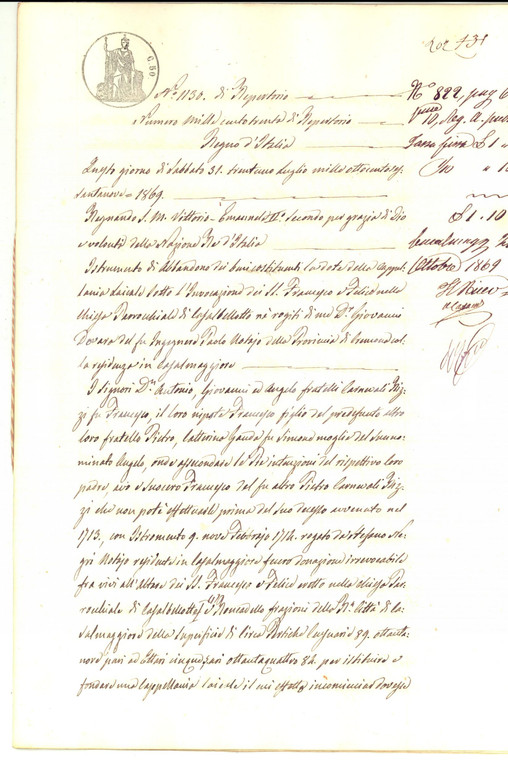 C. 50
N.o 1130. di Repertorio
Numero mille cento trenta di Repertorio
Regno d'Italia
Questo giorno di Sabbato 31. trentuno Luglio mille ottocento ses
santanove 1869.
Regnando S. M. Vittorio Emanuele II.o Secondo per grazia di Dio
e volontà della Nazione Re d'Italia
Istrumento di Abbandono dei beni costituenti la dote della Cappel
lania Laicale sotto l'Invocazione dei SS. Francesco e Felice nella
Chiesa Parrocchiale di Casalbellotto ne' rogiti di me Dr. Giovanni
Dovara del fu Ingegnere Paolo Notajo della Provincia di Cremona col
la residenza in Casalmaggiore
I Signori Dn. Antonio, Giovanni ed Angelo fratelli Carnevali Riz
zi fu Francesco, il loro nipote Francesco figlio del predefunto altro
loro fratello Pietro, Catterina Ganda fu Simone moglie del sunno
minato Angelo, onde assecondare le intenzioni del rispettivo loro
padre, avo e Suocero Francesco del fu altro Pietro Carnevali Riz
zi che non potè effettuarle prima del suo decesso avvenuto nel
1713, con Istromento 9. nove Febbrajo 1714. rogato da Stefano Ne
gri Notajo residente in Casalmaggiore fecero donazione irrevocabile
fra vivi all'Altare dei SS. Francesco e Felice eretto nella chiesa Par
rocchiale di Casalbellotto e Roncadello frazioni della Ra. Città di Ca
salmaggiore della superficie di circa Pertiche 89. ottanta
nove pari ad Ettari cinque, ari ottantaquattro 84. per istituire e
fondare una Cappellania laicale il cui effetto incominciar dovesse
N.o 822, pag
10, Reg. A.
Tassa fissa £ 1
£ 1. 10
Ottobre 1869
Il Ricev